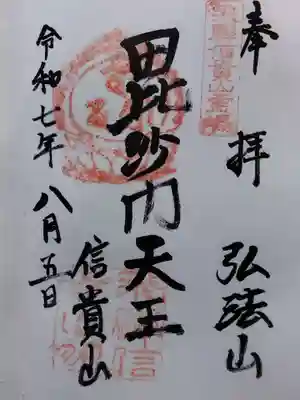 奉拝 弘法山
毘沙門天王
信貴山
令和七年八月五日